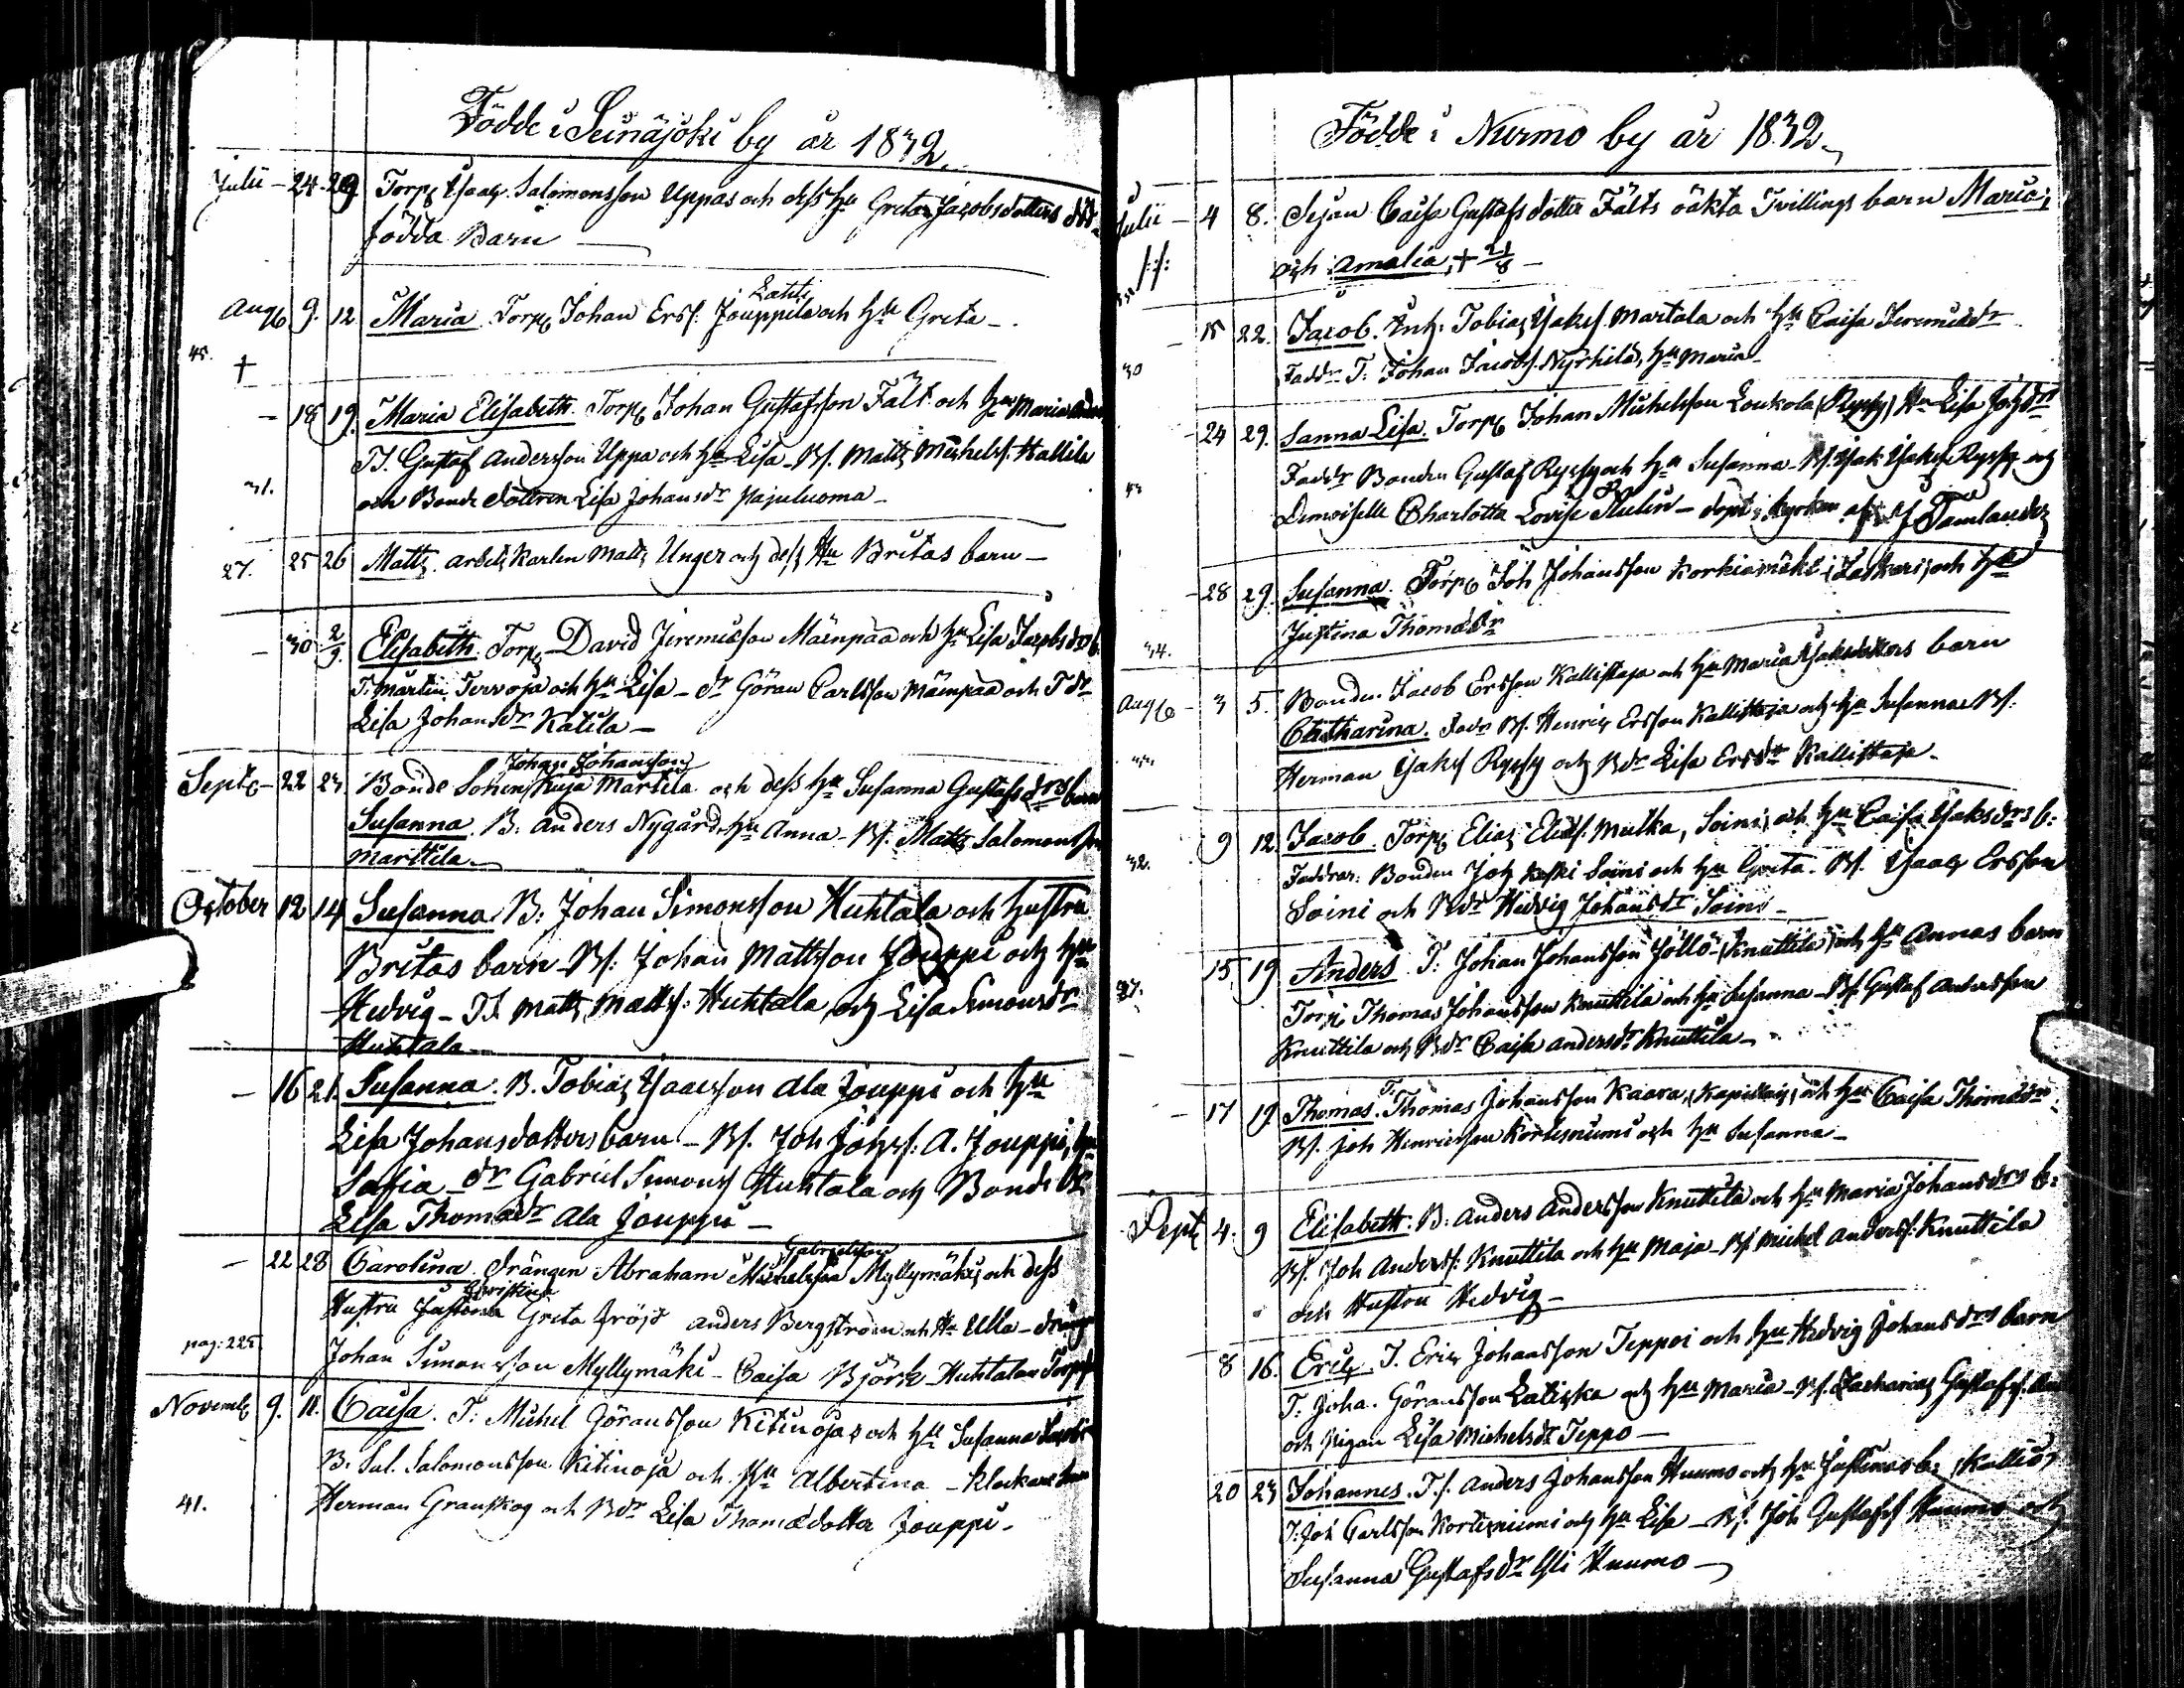 Födde i Seinäjoki by år 1832.
Julii - 24 - 29 Torp Isaac Salomonsson Uppas och dess hu Greta Jacobsdotters död-
födda Barn
Lahti
Aug 9. 12 Maria. Torp Johan Erss. Jouppila och hu Greta -
45.
†
- 18 19. Maria Elisabeth. Torp Johan Gustafsson Fält och hu Maria
Ts. Gustaf Andersson Uppa och hu Lisa - Bs. Matts Michelss. Hallila
31. och Bonde dottren Lisa Johansdr Pajuluoma -
27. 25 26 Matts. arbets karlen Matts Unger och dess Hu Britas barn -
- 30 2/9. Elisabeth. Torp David Jeremiasson Mäenpää och hu Lisa Jacobsdrs b.
T. Martin Tervoja och hu Lisa - dr Göran Carlsson Mäenpää och T dr
Lisa Johansdr Katila -
Johan Johansson
Sept - 22 23 Bonde Sonen Kuja Martila och dess hu Susanna Gustafsdrs barn
Susanna. B. Anders Nygård, hu Anna - Bs. Matts Salomonsson
Marttila -
October 12 14 Susanna. B: Johan Simonsson Huhtala och hustru
Britas barn - Bs: Johan Mattsson Jouppi och hu
Hedvig - Ts Matts Matts: Huhtala och Lisa Simonsdr
Huhtala -
- 16 21. Susanna. B. Tobias Isaacsson Ala Jouppi och hu
Lisa Johansdotters barn - Bs. Joh Johss: A. Jouppi, hu
Safia - dr Gabriel Simonss Huhtala och Bonde dr
Lisa Thomædr Ala Jouppi -
Gabrielsson
- 22 28 Carolina. Drängen Abraham Michelsson Myllymäki och dess
Christina
Hustru Justina Greta Fröjd Anders Bergström och Hu Ulla - dräng
pag: 225 Johan Simonsson Myllymäki - Caisa Björk - Huhtalan Torp
Novemb 9. 11. Caisa. T: Michel Göransson Kitinoja och hu Susanna
B. Sal. Salomonsson Kitinoja och Hu Albertina - Klockare
41. Herman Granskog och Bdr Lisa Thomædotter Jouppi -
Födde i Nurmo by år 1832.
Julii - 4 8. Pejan Caisa Gustafsdotter Fälts oäkta Tvillings barn Maria,
och Amalia, † 21/8 -
15 22. Jacob. Inh: Tobias Isaks. Martala och hu Caisa Jeremiædr
30 Faddr T: Johan Jacobs. Nyrhilä, hu Maria -
- 24 29. Sanna Lisa. Torp Johan Michelsson Loukola (Ryssy) Hu Lisa Johdrs
43 Faddr Bonden Gustaf Ryssy och hu Susanna Bs. Isak Isaks Ryssy och
Demoiselle Charlotta Lovise - döpt i kyrkan af
- 28 29. Susanna. Torp Joh Johansson Korkiamäki och hu
34. Justina Thomædr
Aug - 3 5. Bonden Jacob Ersson Kallistaja och hu Maria Isaksdotters barn
Chatharina. Fadr Bs. Henric Ersson Kallistaja och hu Susanna Bs.
Herman Isaks Ryssy och Bdr Lisa Ersdr Kallistaja -
9 12. Jacob. Torp Elias Elias. Mulka, Soini, och hu Caisa Isaksdrs b:
32. Faddrar: Bonden Joh Koski Soini och hu Greta. Bs. Isaac Ersson
Soini och Bdr Hedvig Johansdr Soini -
15 19 Anders. T: Johan Johansson Jöllö (Knuttila) och hu Annas barn
27. Torp Thomas Johansson Knuttila och hu Susanna - Bs. Gustaf Andersson
Knuttila och Bdr Caisa Andersdr Knuttila -
- 17 19 Thomas. T. Thomas Johansson Kaara, och hu Caisa Thomædr
Bs. Joh Henricsson Kortesniemi och hu Susanna -
Sept 4. 9 Elisabeth. B: Anders Andersson Knuttila och hu Maria Johansdrs b:
Bs. Joh Anderss: Knuttila och hu Maja - Bs Michel Anderss: Knuttila
och Hustru Hedvig -
- 8 16. Eric. T. Eric Johansson Teppoi och hu Hedvig Johansdrs barn
T: Joha. Göransson Latiska och hu Maria - Bs. Zacharias Gustafss.
och Pigan Lisa Michelsdr Teppo -
20 23 Johannes. Ts. Anders Johansson Huumo och hu Justinas b: Kallio
T. Joh Carlsson Kortesniemi och hu Lisa - Bs. Joh Gustafss Huumo och
Susanna Gustafsdr Yli Huumo -